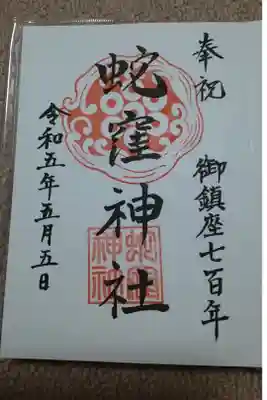 奉祝 御鎮座七百年
蛇窪神社
令和五年五月五日
蛇窪
神社